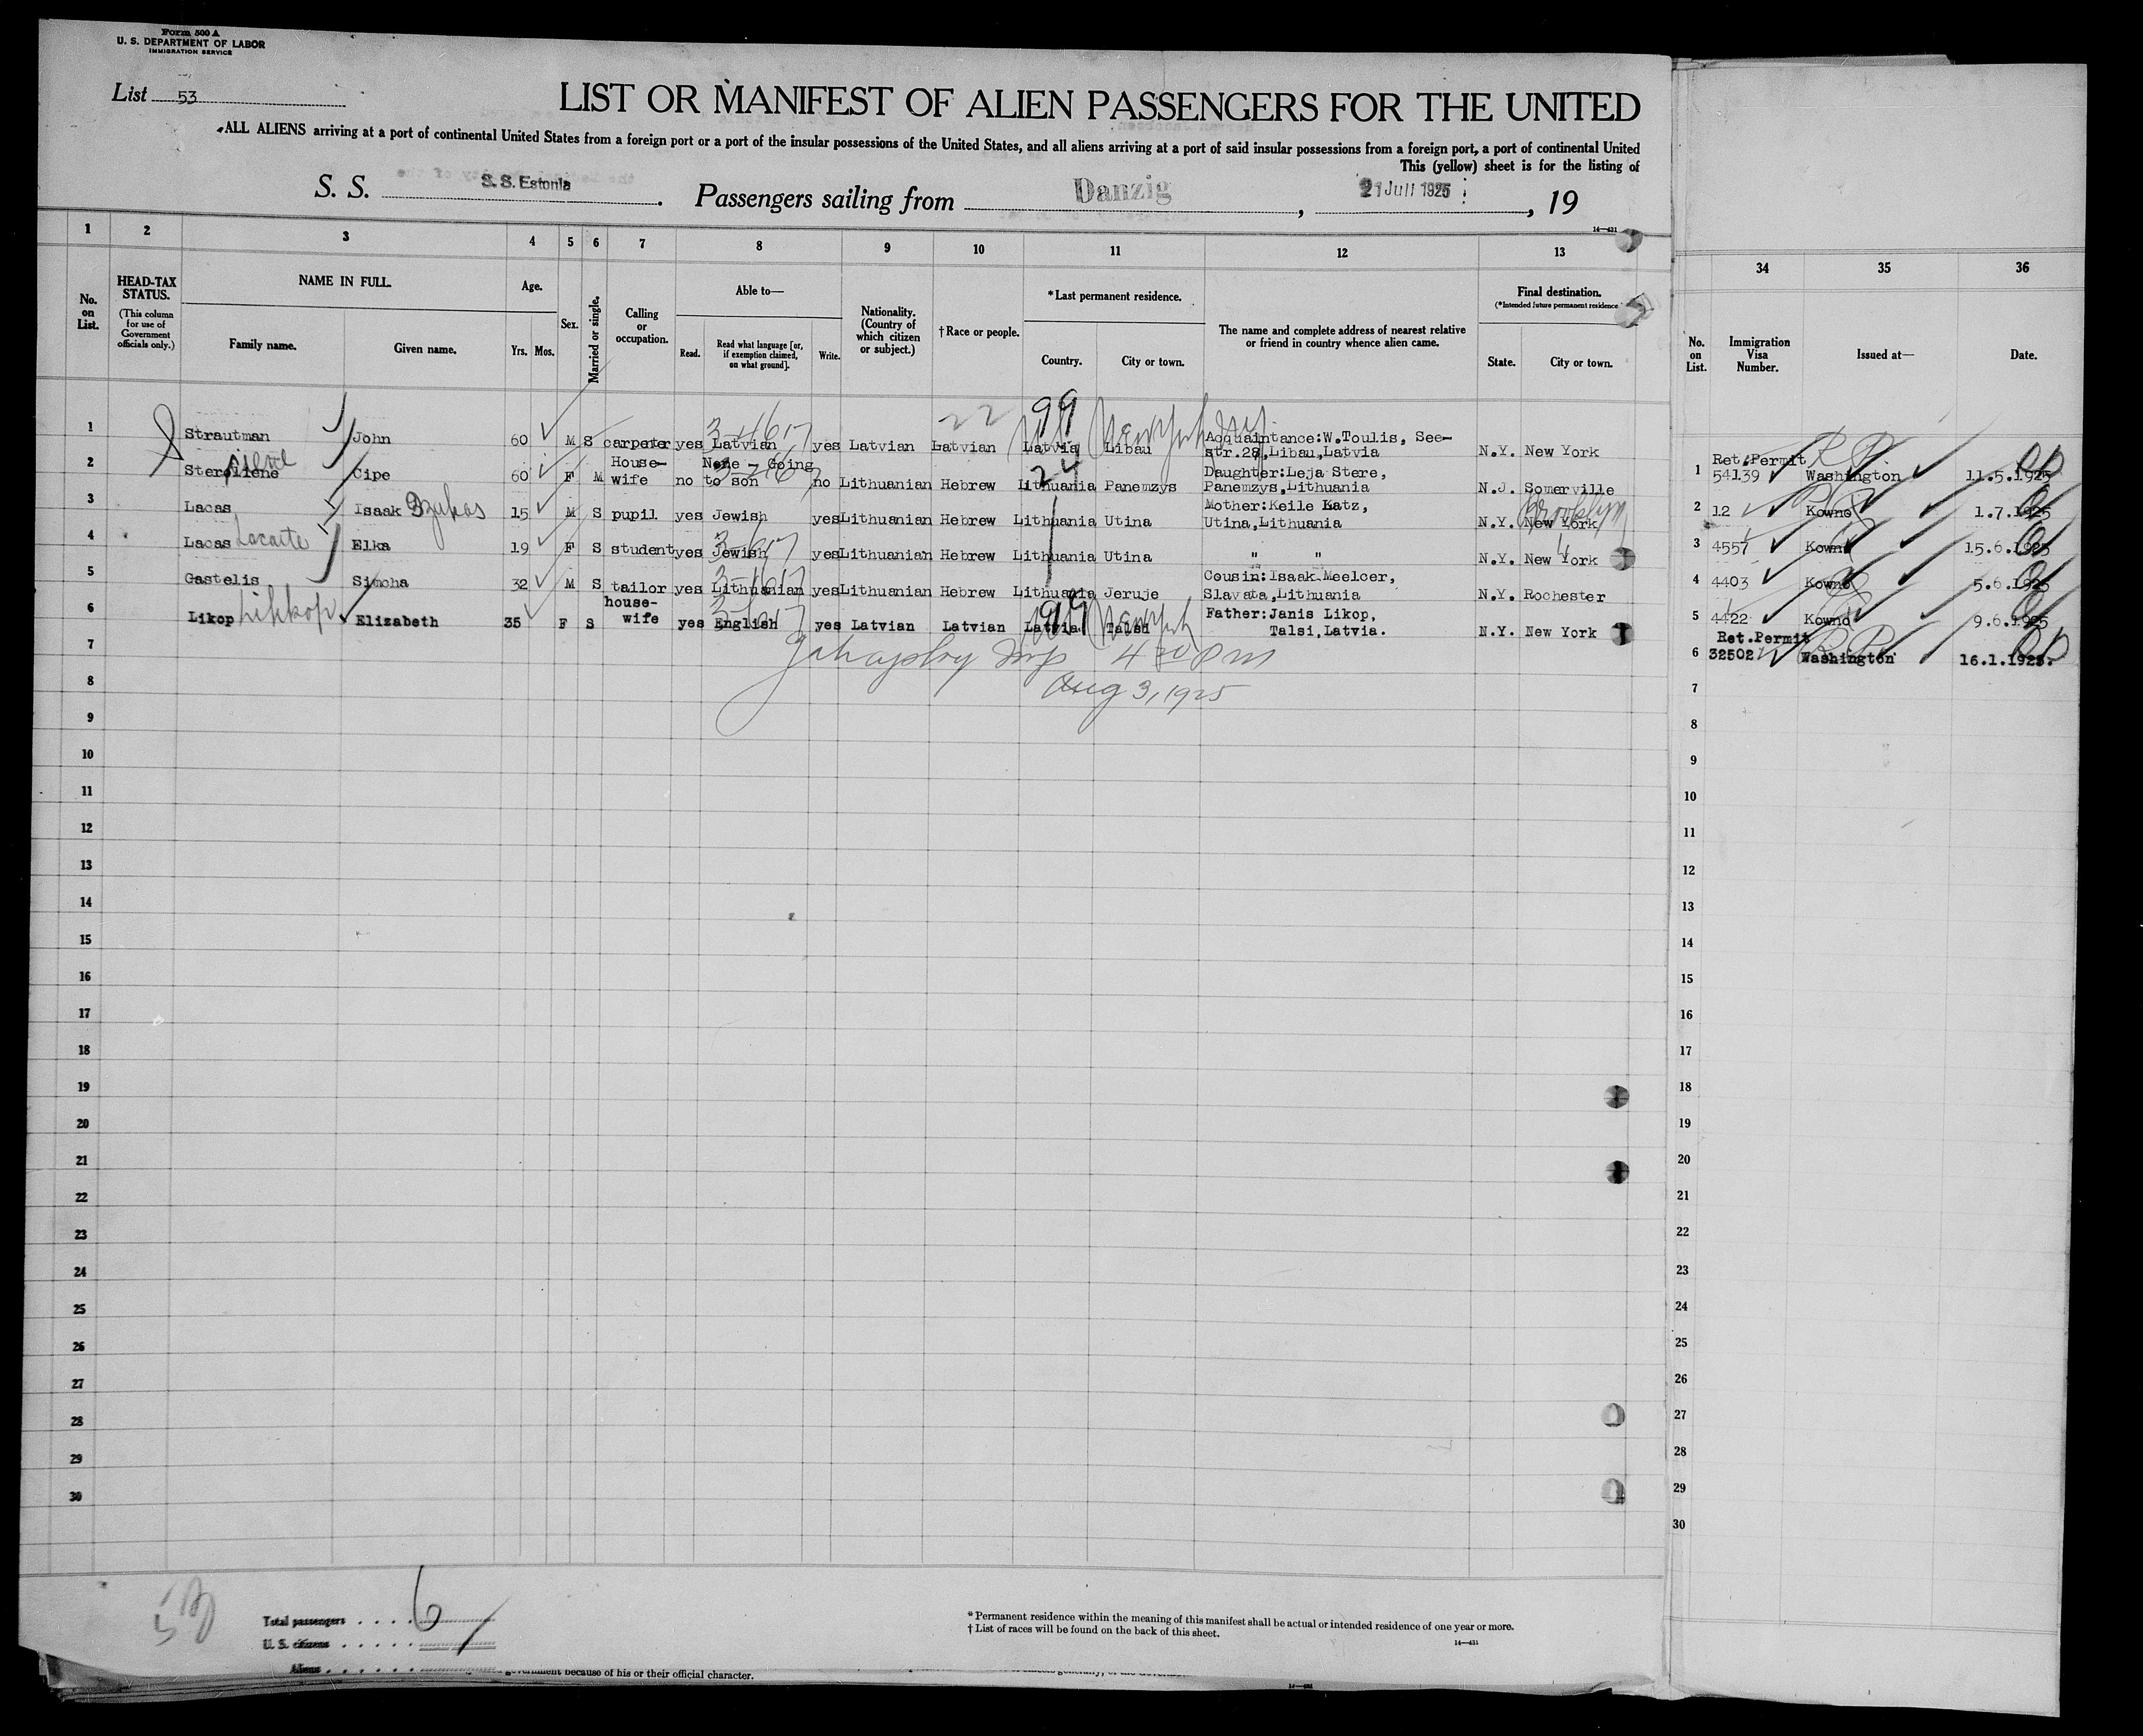 Form 500 A
U. S. DEPARTMENT OF LABOR
IMMIGRATION SERVICE
List 53
LIST OR MANIFEST OF ALIEN PASSENGERS FOR THE UNITED
ALL ALIENS arriving at a port of continental United States from a foreign port or a port of the insular possessions of the United States, and all aliens arriving at a port of said insular possessions from a foreign port, a port of continental United
This (yellow) sheet is for the listing of
S. S. S. S. Estonia. Passengers sailing from Danzig, 21 Juli 1925, 19
14—431
1 2 3 4 5 6 7 8 9 10 11 12 13 34 35 36
No. on List.
HEAD-TAX STATUS.
(This column for use of Government officials only.)
NAME IN FULL.
Family name. Given name.
Age.
Yrs. Mos.
Sex.
Married or single.
Calling or occupation.
Able to—
Read. Read what language [or, if exemption claimed, on what ground]. Write.
Nationality. (Country of which citizen or subject.)
†Race or people.
*Last permanent residence.
Country. City or town.
The name and complete address of nearest relative or friend in country whence alien came.
Final destination.
(*Intended future permanent residence
State. City or town.
No. on List.
Immigration Visa Number.
Issued at—
Date.
1 Strautman John 60 M S carpeter yes Latvian yes Latvian Latvian Latvia Libau Acquaintance:W.Toulis, See-str.28,Libau,Latvia N.Y. New York
22 99
2 Cipe 60 F M House-wife no None - Going to son no Lithuanian Hebrew Lithuania Panemzys Daughter:Leja Stere, Panemzys,Lithuania N.J. Somerville
24
3 Lacas Isaak 15 M S pupil yes Jewish yes Lithuanian Hebrew Lithuania Utina Mother:Keile Katz, Utina,Lithuania N.Y. New York Brooklyn
4 Lacas Lacaite Elka 19 F S student yes Jewish yes Lithuanian Hebrew Lithuania Utina " " N.Y. New York
5 Gastelis Simcha 32 M S tailor yes Lithuanian yes Lithuanian Hebrew Lithuania Jeruje Cousin:Isaak Meelcer, Slavata,Lithuania N.Y. Rochester
6 Likop Likkop Elizabeth 35 F S house-wife yes English yes Latvian Latvian Latvia Talsi Father:Janis Likop, Talsi,Latvia. N.Y. New York
99
4 30 P m
Aug 3, 1925
1 Ret.Permit 54139 Washington 11.5.1925
2 12 Kowno 1.7.1925
3 4557 Kowno 15.6.1925
4 4403 Kowno 5.6.1925
5 4422 Kowno 9.6.1925
6 Ret.Permit 32502 Washington 16.1.1925.
7
8
9
10
11
12
13
14
15
16
17
18
19
20
21
22
23
24
25
26
27
28
29
30
7
8
9
10
11
12
13
14
15
16
17
18
19
20
21
22
23
24
25
26
27
28
29
30
Total passengers . . . . 6
U. S. citizens . . . . .
Aliens . . . . . .
* Permanent residence within the meaning of this manifest shall be actual or intended residence of one year or more.
† List of races will be found on the back of this sheet.
14—431
because of his or their official character.